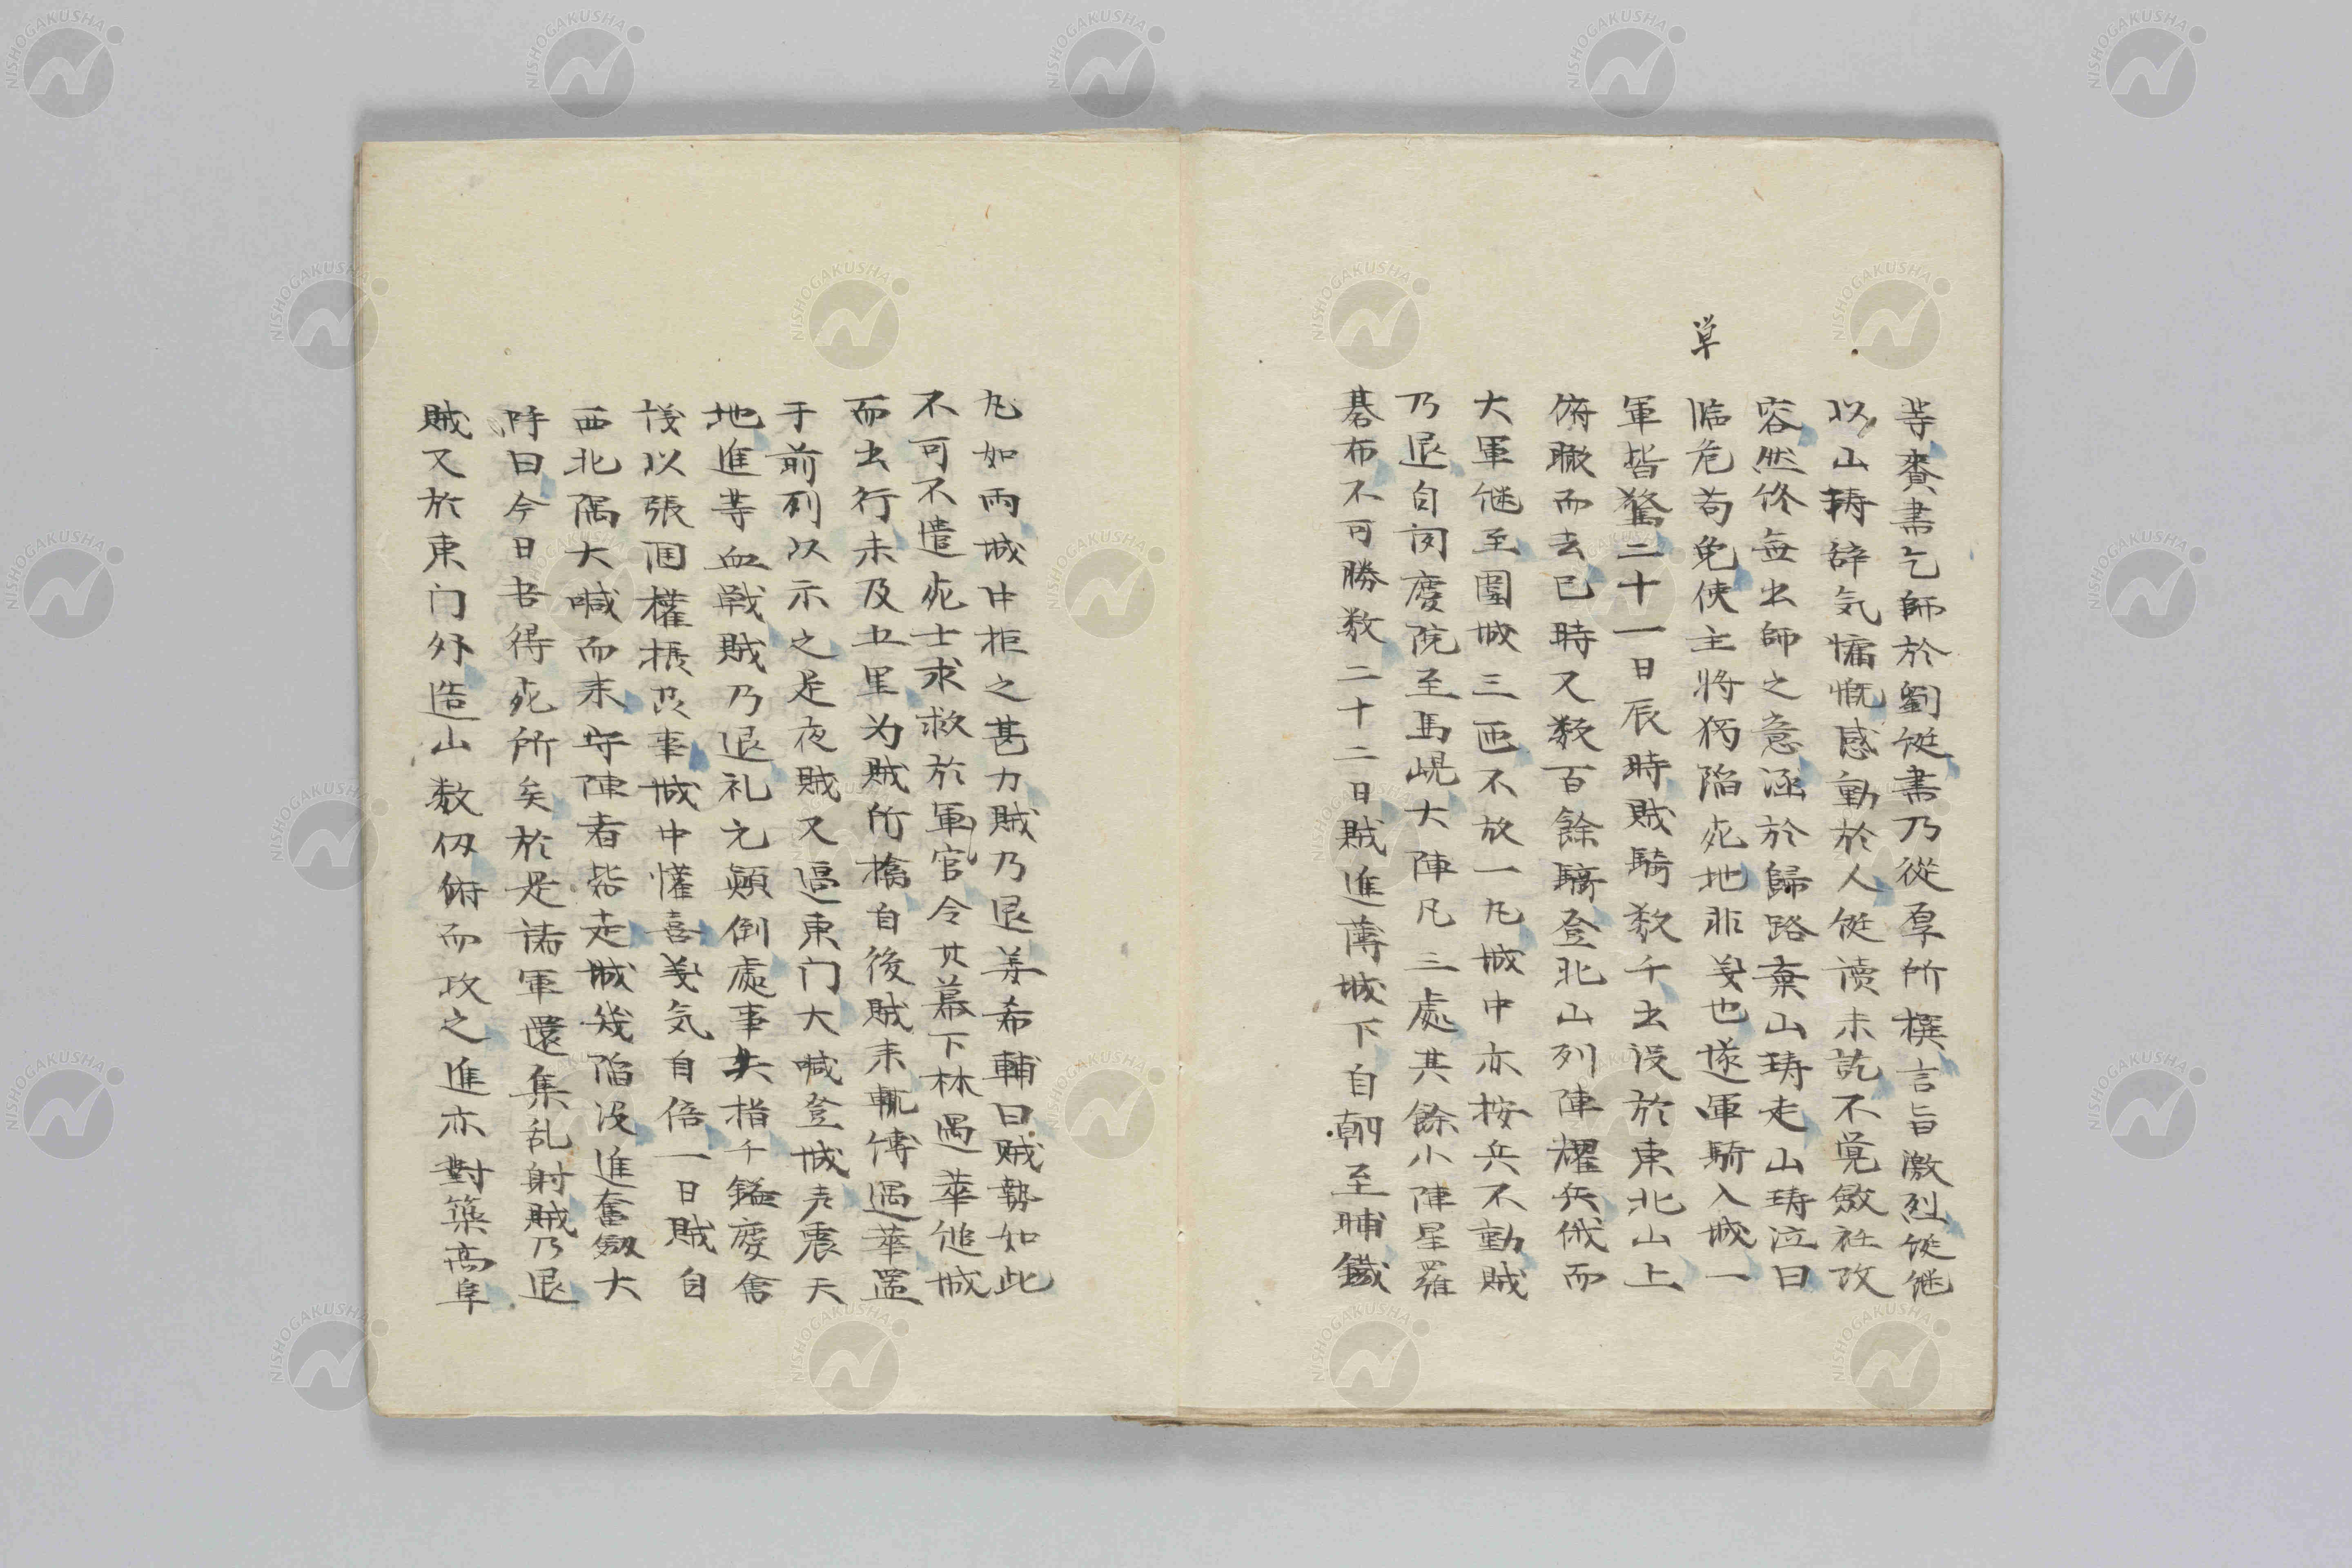 草
等賷書乞師於劉綎書乃從厚所撰言旨激烈綎継
以山擣辞気慵慨感動於人綎读未訖不覚斂衽改
容然终無出師之意溋於歸路棄山擣走山擣泣曰
临危苟免使主將独陥死地非義也遂軍騎入城一
軍皆驚二十一日辰時賊騎数千出没於東北山上
俯瞰而去已時又数百餘騎登北山列陣耀兵俄而
大軍継至圍城三匝不放一丸城中亦按兵不動賊
乃退自閔慶院至馬峴大陣凡三處其餘小陣星羅
碁布不可勝数二十二日賊進薄城下自朝至晡鐵
丸如雨城中拒之甚力賊乃退姜希輔曰賊勢如此
不可不遣死士求救於軍官令其幕下林遇華縋城
而出行未及五里为賊所擒自後賊来輒傳遇華置
于前列以示之是夜賊又逼東门大喊登城声震天
地進等血戦賊乃退礼元顛倒處事失指千鎰慶會
伐以張潤權振沢事城中懽喜義気自倍一日賊自
西北隅大喊而来守陣者皆走城幾陥没進奮劔大
呼曰今日吾得死所矣於是諸軍還集乱射賊乃退
賊又於東门外造山数仭俯而攻之進亦對築高阜